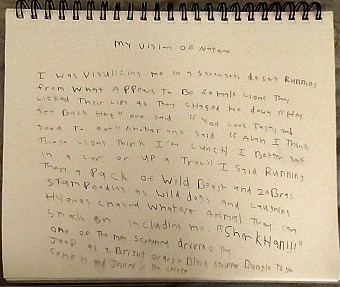 My Vision of Nature
I was visulizing me in a serengeti desert Running
from what Appears To Be female Lions They
Licked Their Lips as they chased me down "Hey
Get Back Here" one said "You Look Tasty and
Good To eat" Another one said "Ahh I Think
Those Lions Think I'm Lunch I Better Get
in a car or up a Tree" I said Running
Then a Pack of Wild Beast and Zebras
Stampeding as wild dogs and Laughing
Hyenas chased Whatever Animal They can
Snack on including me. "SharkHan!!!"
one of the men screamed driving the
Jeep as a Bright orange Black striped Bengle Tiger
came in and Joined in the chase